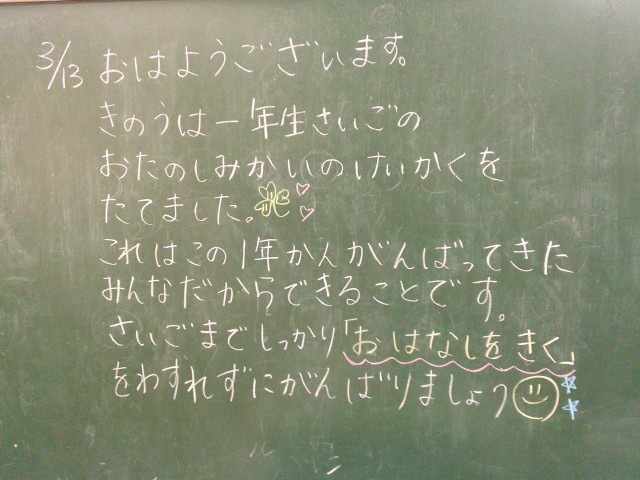 3/13 おはようございます。
きのうは一年生さいごの
おたのしみかいのけいかくを
たてました。
これはこの1年かんがんばってきた
みんなだからできることです。
さいごまでしっかり「おはなしをきく」
をわすれずにがんばりましょう